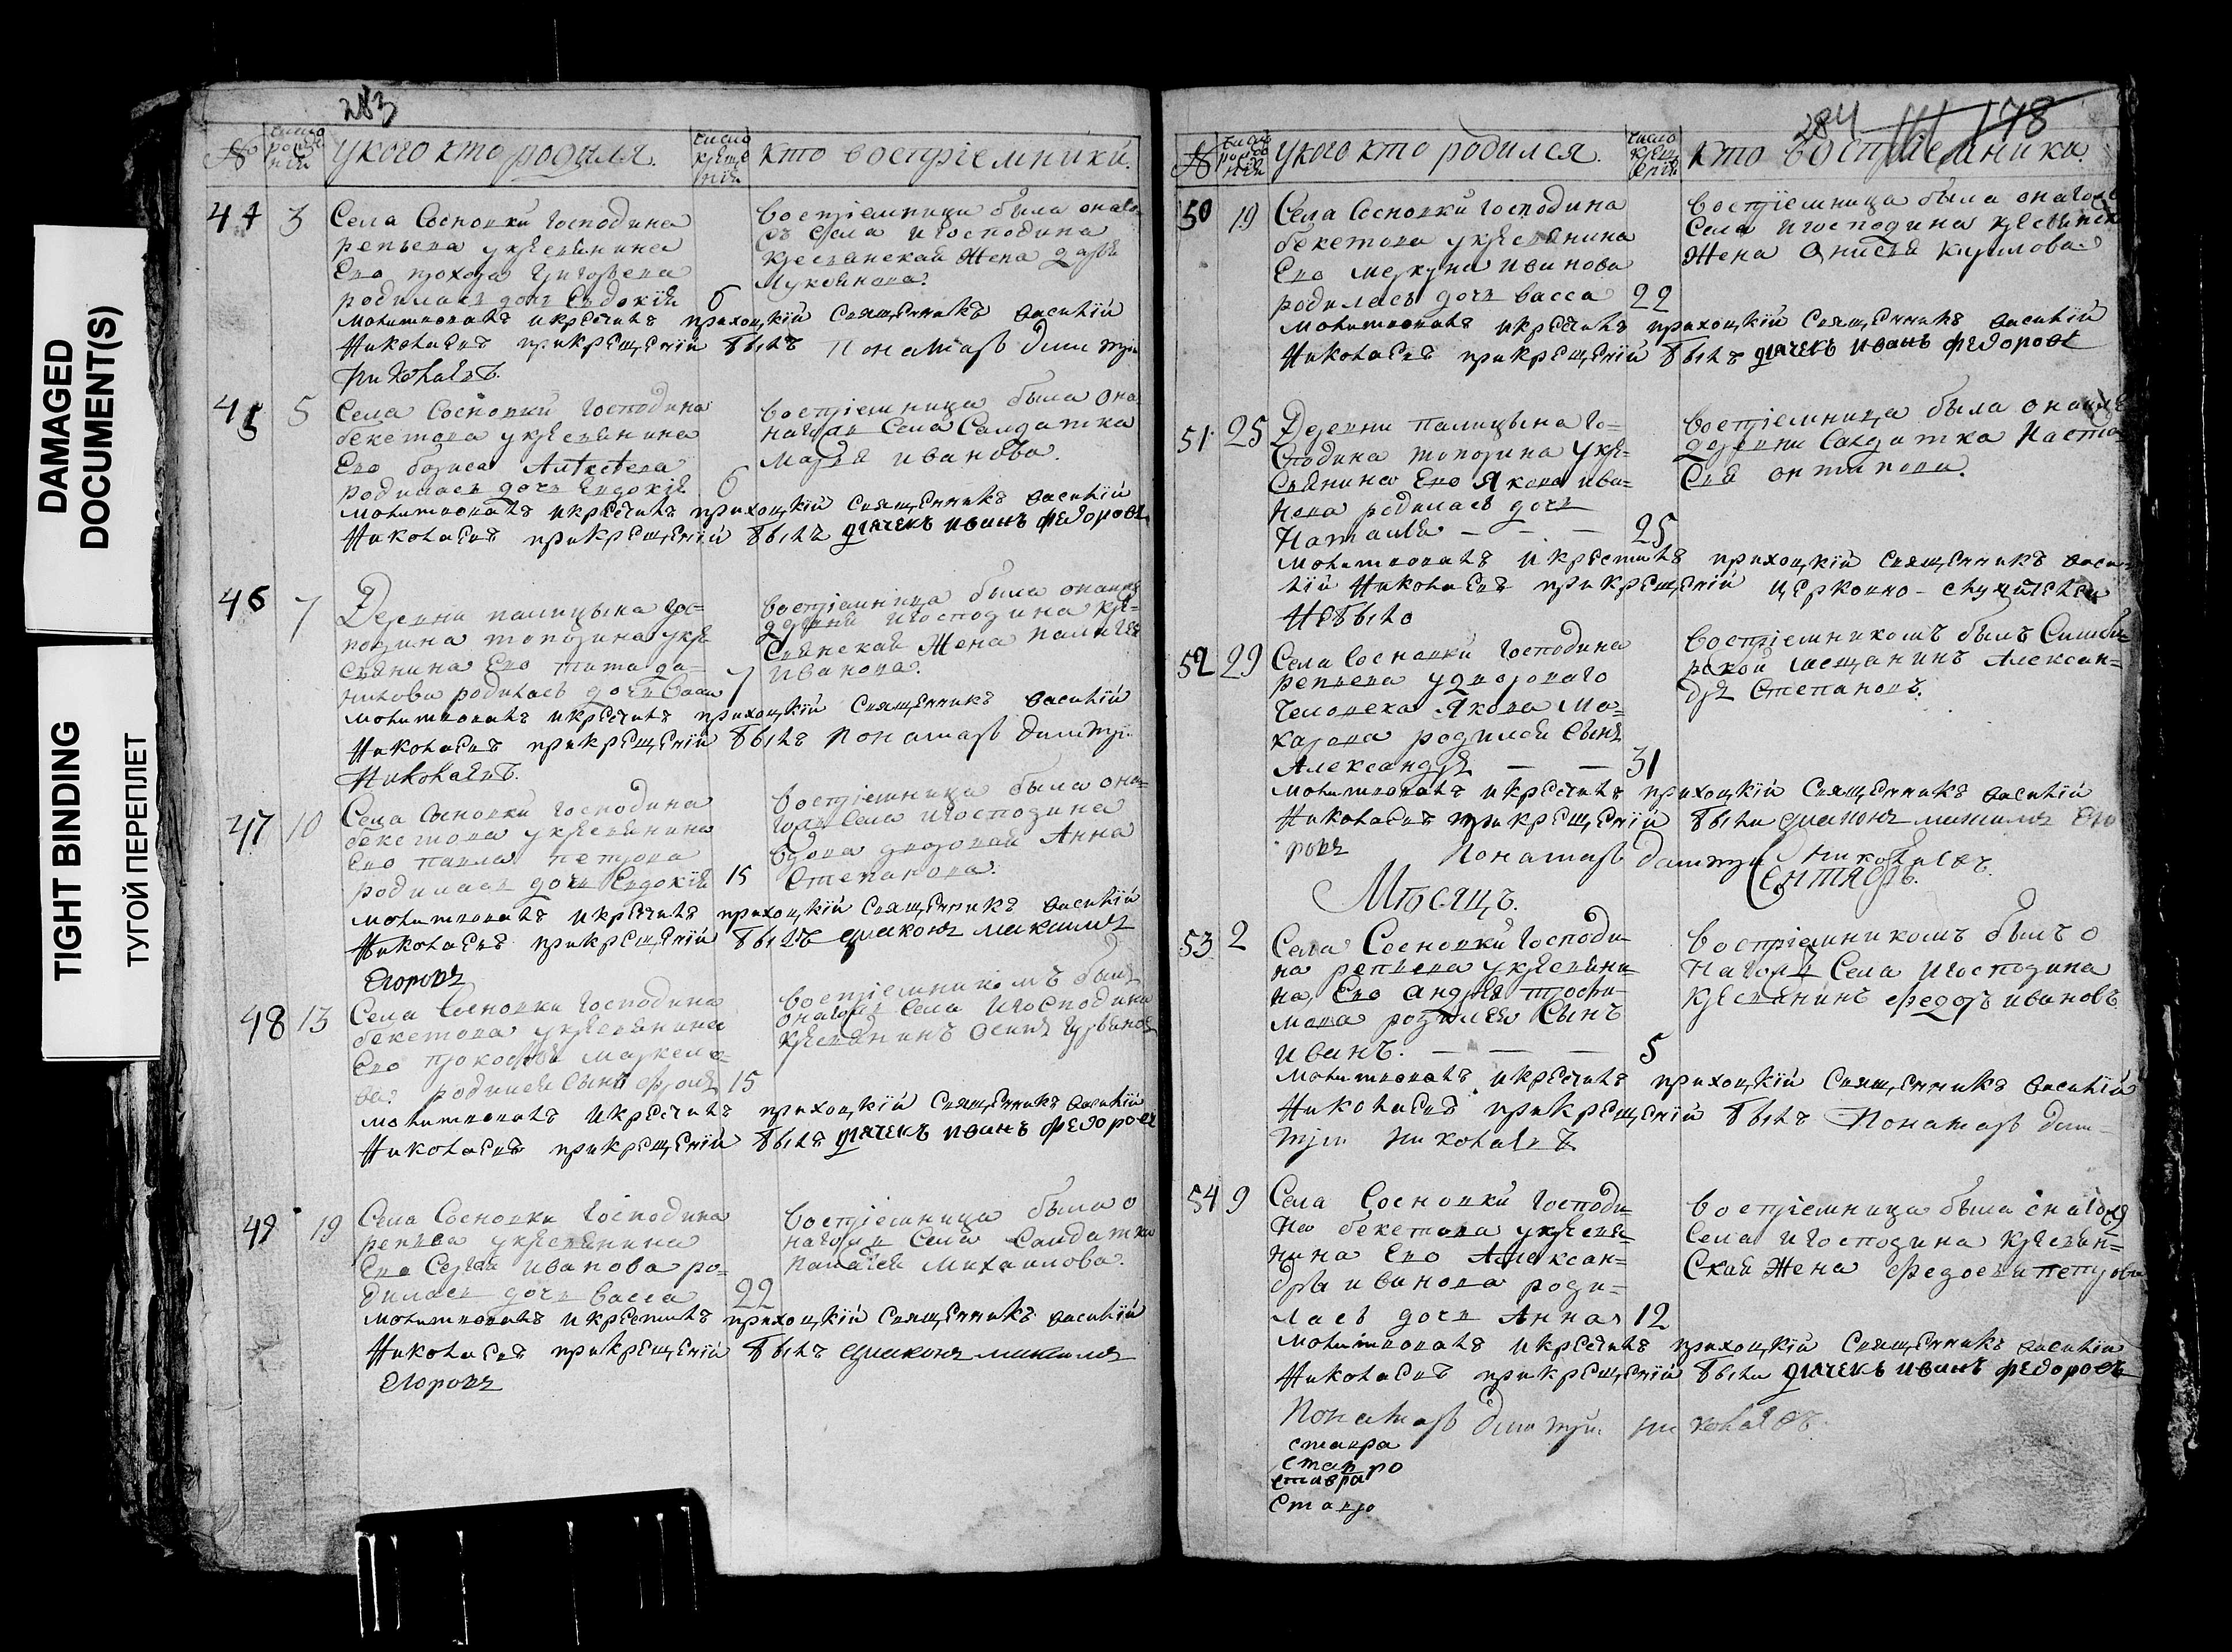 DAMAGED
DOCUMENT(S)
TIGHT BINDING
ТУГОЙ ПЕРЕПЛЕТ
283
№ число рожде нїй у кого кто родился. число креще нїя кто воспрїемники.
44 3 Села Сосновки господина
репьева у крестьянина
Ево прохора григорьева
родилась дочь Евдокїя 6
воспрїемница была онаго
Села и господина
крестьянская жена дарья
Лукьянова.
молитвовалъ и крестилъ приходскїй священникъ василїй
Николаевъ при крещенїй былъ Понамарь димитри
николаевъ.
45 5 Села Сосновки господина
бекетова у крестьянина
Ево бориса
родилась дочь Евдокїя 6
воспрїемница была она
магожъ Села Салдатка
марья иванова.
молитвовалъ и крестилъ приходскїй священникъ василїй
Николаевъ при крещенїй былъ дьячекъ иванъ федоровъ
46 7 Деревни палицына гос=
подина топорина у кре
стьянина Ево тита да=
нилова родилась дочь васса 7
воспрїемница была онаиже
деревни и господина кре=
стьянская жена палагея
иванова.
молитвовалъ и крестилъ приходскїй священникъ василїй
Николаевъ при крещенїй былъ Понамарь димитри
Николаевъ.
47 10 Села Сосновки господина
бекетова у крестьянина
Ево павла петрова
родилась дочь Евдокїя 15
воспрїемница была она=
гожъ Села и господина
вдова дворовая Анна
Степанова.
молитвовалъ и крестилъ приходскїй священникъ василїй
Николаевъ при крещенїй былъ дьяконъ максимъ
Егоровъ
48 13 Села Сосновки господина
бекетова у крестьянина
Ево прокофья маркело=
ва. родился Сынъ фролъ 15
воспрїемникомъ былъ
онагожъ Села и господина
крестьянинъ осипъ
молитвовалъ и крестилъ приходскїй священникъ василїй
Николаевъ при крещенїй былъ дьячекъ иванъ федоровъ
49 19 Села Сосновки господина
репьева у крестьянина
Ево Сергея иванова ро=
дилась дочь васса 22
воспрїемница была о
нагожъ Села Салдатка
палагея михаилова.
молитвовалъ и крестилъ приходскїй священникъ василїй
Николаевъ при крещенїй былъ дьяконъ максимъ
Егоровъ
284 178
№ число рожде нїй у кого кто родился. число крещ енїй кто воспрїемники.
50 19 Села Сосновки господина
бекетова у крестьянина
Ево меркула иванова
родилась дочь васса 22
воспрїемница была онагожъ
Села и господина крестьянск
жена Анисья кирилова.
молитвовалъ и крестилъ приходскїй священникъ василїй
Николаевъ при крещенїй былъ дьячекъ иванъ федоровъ
51 25 Деревни палицына го=
сподина топорина у кре=
стьянина Ево Якова ива=
нова родилась дочь
Наталья — — — 25
воспрїемница была онаиже
деревни Салдатка Наста=
сья антипова.
молитвовалъ и крестилъ приходскїй священникъ васи
лїй Николаевъ при крещенїй церковно-служителей
небыло
52 29 Села Сосновки господина
репьева у двороваго
человека Якова Ма=
карова родился Сынъ
Александръ — — 31
воспрїемникомъ былъ Симби=
рской мещанинъ Алексан=
дръ Степановъ.
молитвовалъ и крестилъ приходскїй священникъ василїй
Николаевъ при крещенїй были дьяконъ максимъ Его
ровъ Понамарь димитри николаевъ.
Мѣсяцъ. Сентябрь.
53 2 Села Сосновки Господи=
на репьева у крестьяни=
на Ево андрея трофи=
мова родился Сынъ
иванъ. — — — 5
воспрїемникомъ былъ о
нагожъ Села и господина
крестьянинъ федоръ ивановъ
молитвовалъ и крестилъ приходскїй священникъ василїй
Николаевъ при крещенїй былъ Понамарь дим=
три николаевъ
54 9 Села Сосновки господи=
на бекетова у крестья=
нина Ево Алексан=
дра иванова роди=
лась дочь Анна 12
воспрїемница была онагожъ
Села и господина крестьян=
ская жена федосья петрова
молитвовалъ и крестилъ приходскїй священникъ василїй
Николаевъ при крещенїй были дьячекъ иванъ федоровъ
Понамарь димитри николаевъ.
ставра
ставро
ставра
ставро